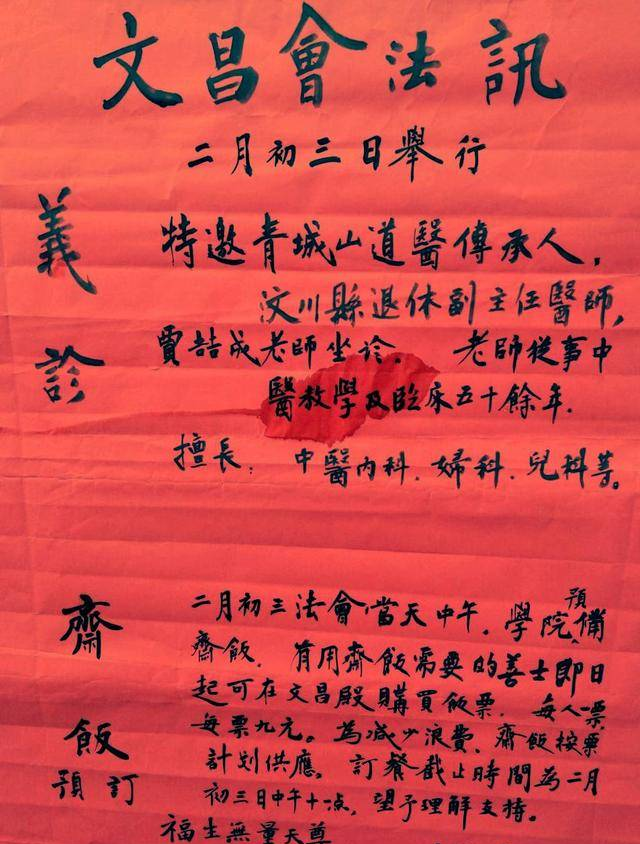 文昌會法訊
二月初三日舉行
義診
特邀青城山道醫傳承人，
汶川縣退休副主任醫師，
賈喆成老師坐诊． 老師從事中
醫教學及臨床五十餘年．
擅長． 中醫内科．婦科．兒科等。
齋飯
預訂
二月初三法會，當天中午．學院預備
齋飯． 有用齋飯需要的善士即日
起可在文昌殿購買飯票． 每人一票
每票九元。為减少浪費．齋飯按票
計划供應． 訂餐截止時間為二月
初三日中午十一点，望予理解支持。
福生無量天尊